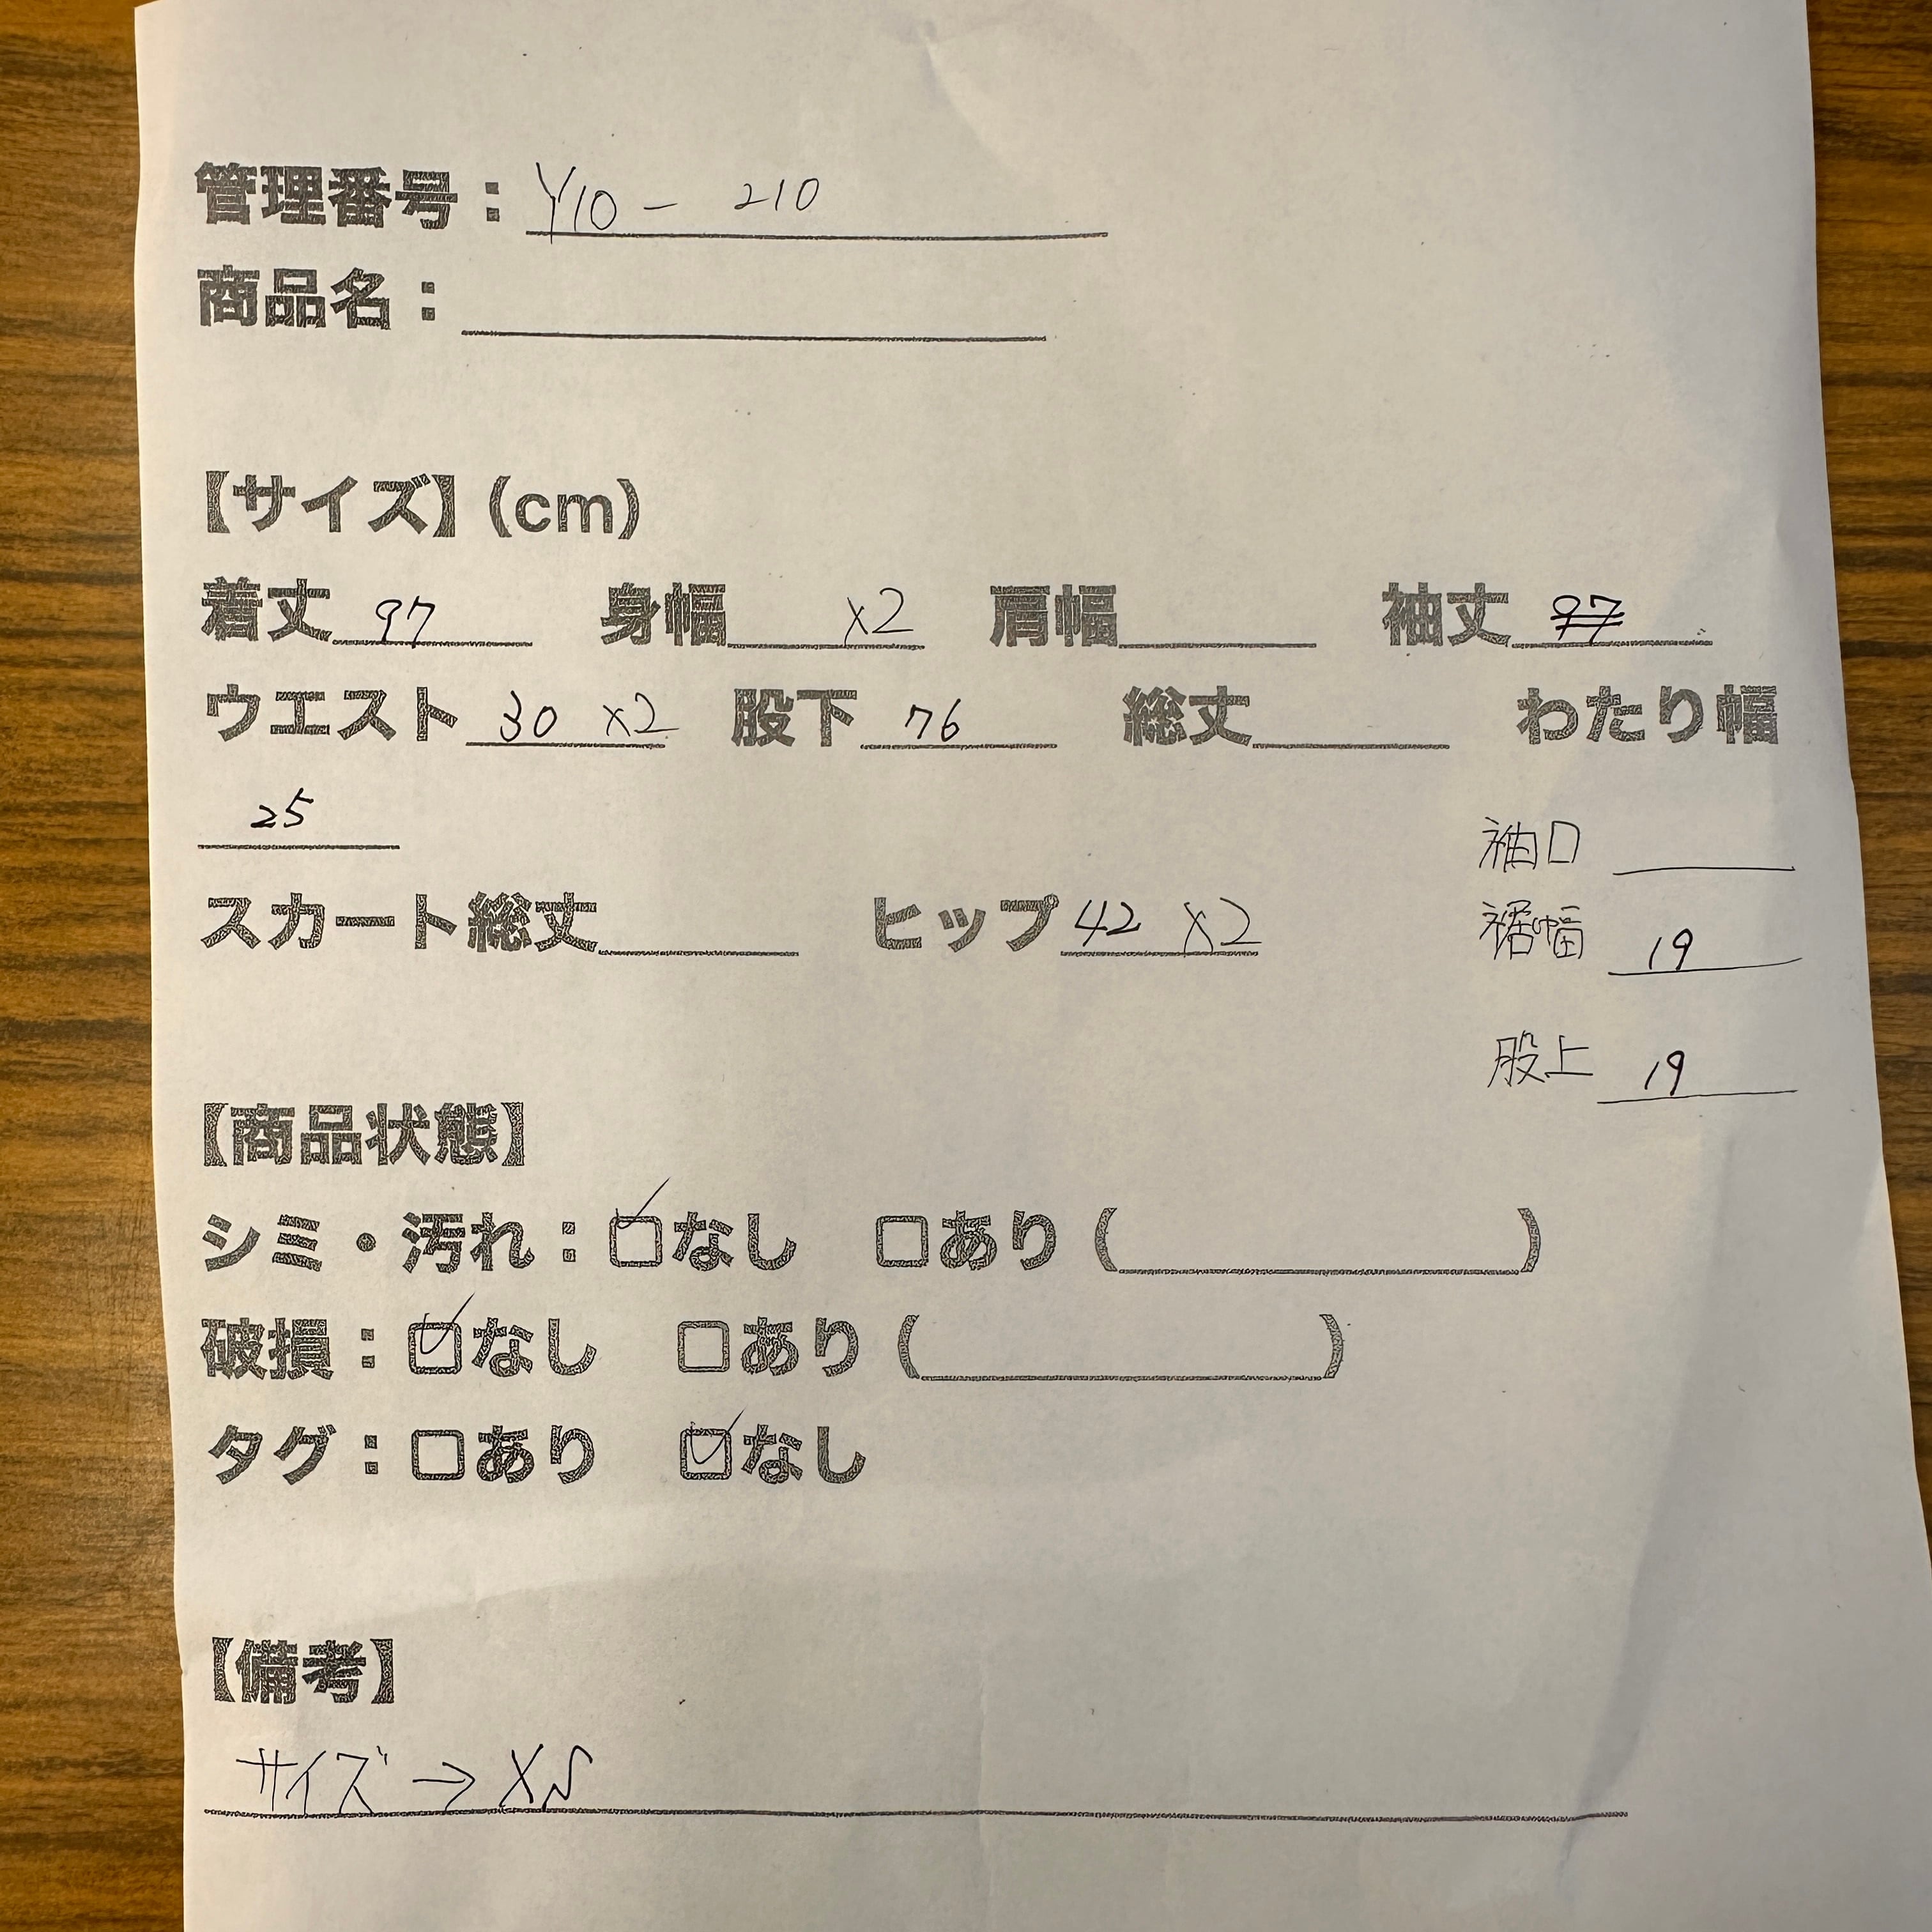 管理番号：Y10 - 210
商品名：
【サイズ】(cm)
着丈 97 身幅 ×2 肩幅 袖丈 97
ウエスト 30 ×2 股下 76 総丈 わたり幅
25
袖口
スカート総丈 ヒップ 42 ×2
裾幅 19
股上 19
【商品状態】
シミ・汚れ：☑なし □あり ( )
破損：☑なし □あり ( )
タグ：□あり ☑なし
【備考】
サイズ→XS